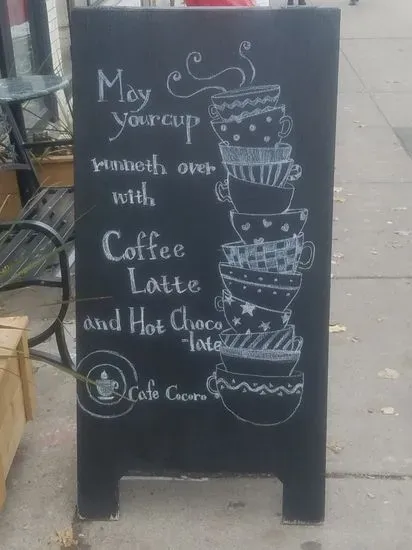 May
your cup
runneth over
with
Coffee
Latte
and Hot Choco
-late
Cafe Cocoro